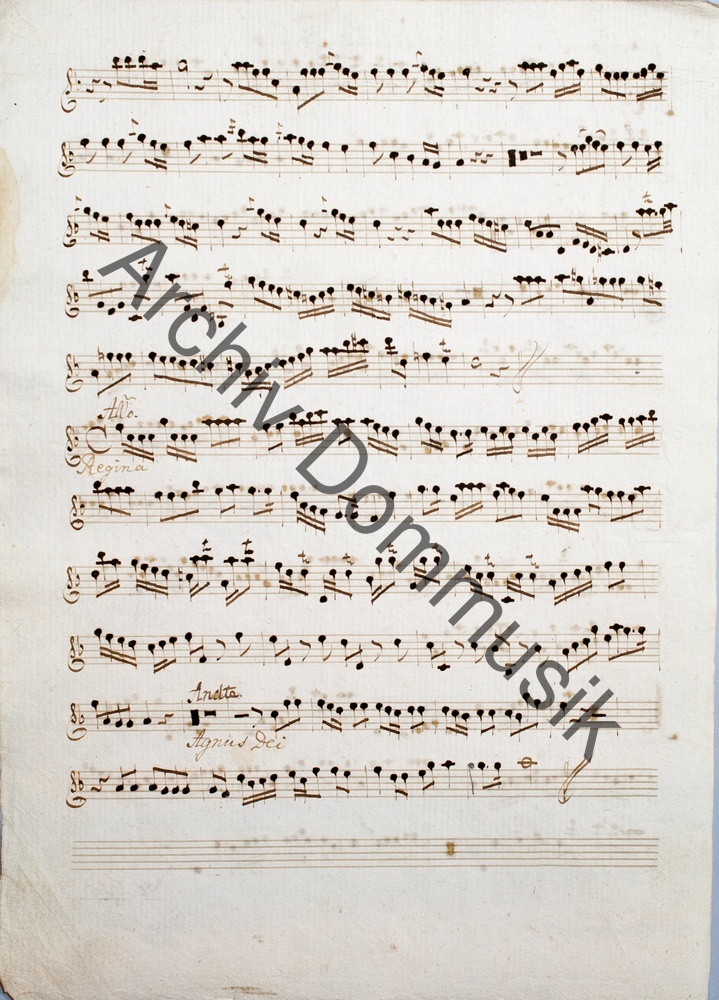 Allo.
Regina
Andte.
Agnus Dei
Archiv Dommusik